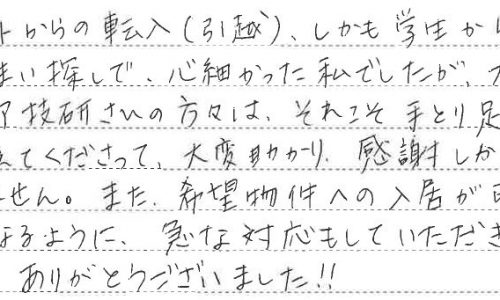 トからの転入(引越)、しかも学生か
まい探しで、心細かった私でしたが、
ア技研さんの方々は、それこそ手とり足
えてくださって、大変助かり、感謝しか
せん。また、希望物件への入居が
なるように、急な対応もしていただき
ありがとうございました!!